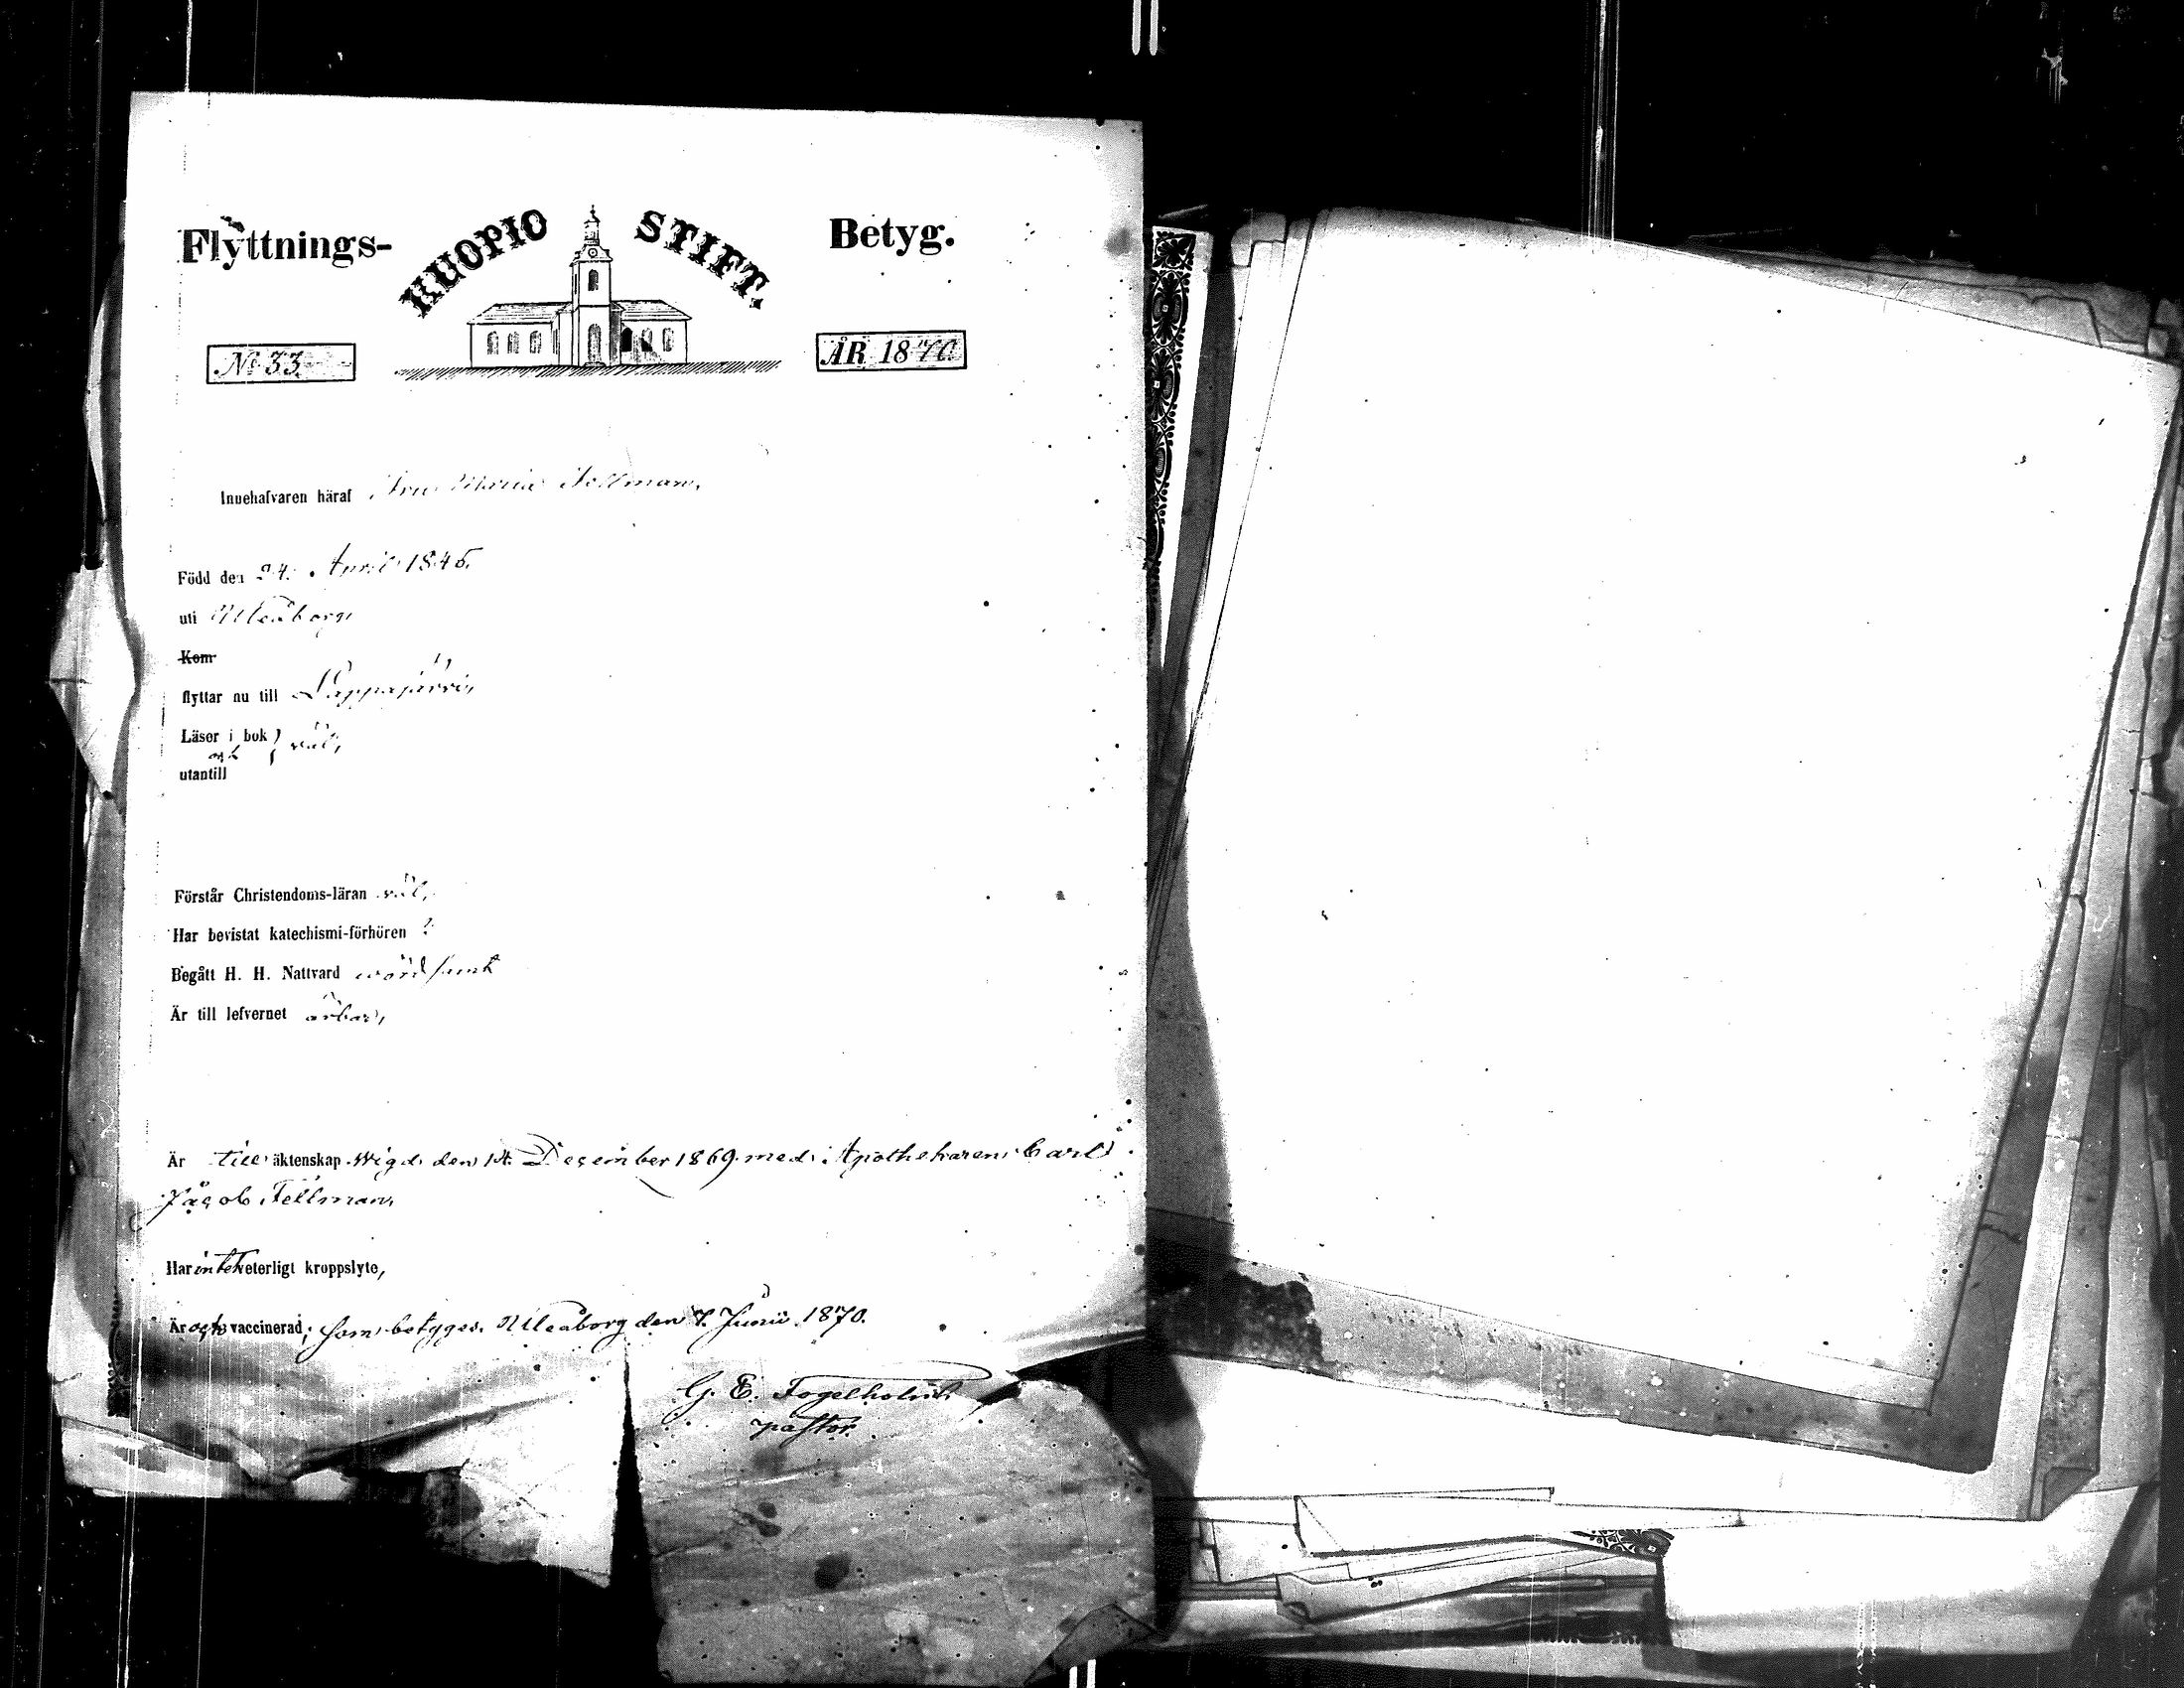 Flyttnings- KUOPIO STIFT. Betyg.
No 33. ÅR 1870.
Innehafvaren häraf Fru Maria Fellman,
Född den 24. April 1845.
uti Uleåborg,
Kom
flyttar nu till Lappajärvi,
Läser i bok } väl,
och
utantill
Förstår Christendoms-läran väl,
Har bevistat katechismi-förhören ?
Begått H. H. Nattvard wördsamt
Är till lefvernet ärbar,
Är till äktenskap wigd den 14. December 1869 med Apothekaren Carl
Jacob Fellman,
Har intet veterligt kroppslyte,
Är ock vaccinerad; som betygges. Uleåborg den 7. Junii 1870.
G. E. Fogelholm
pastor.